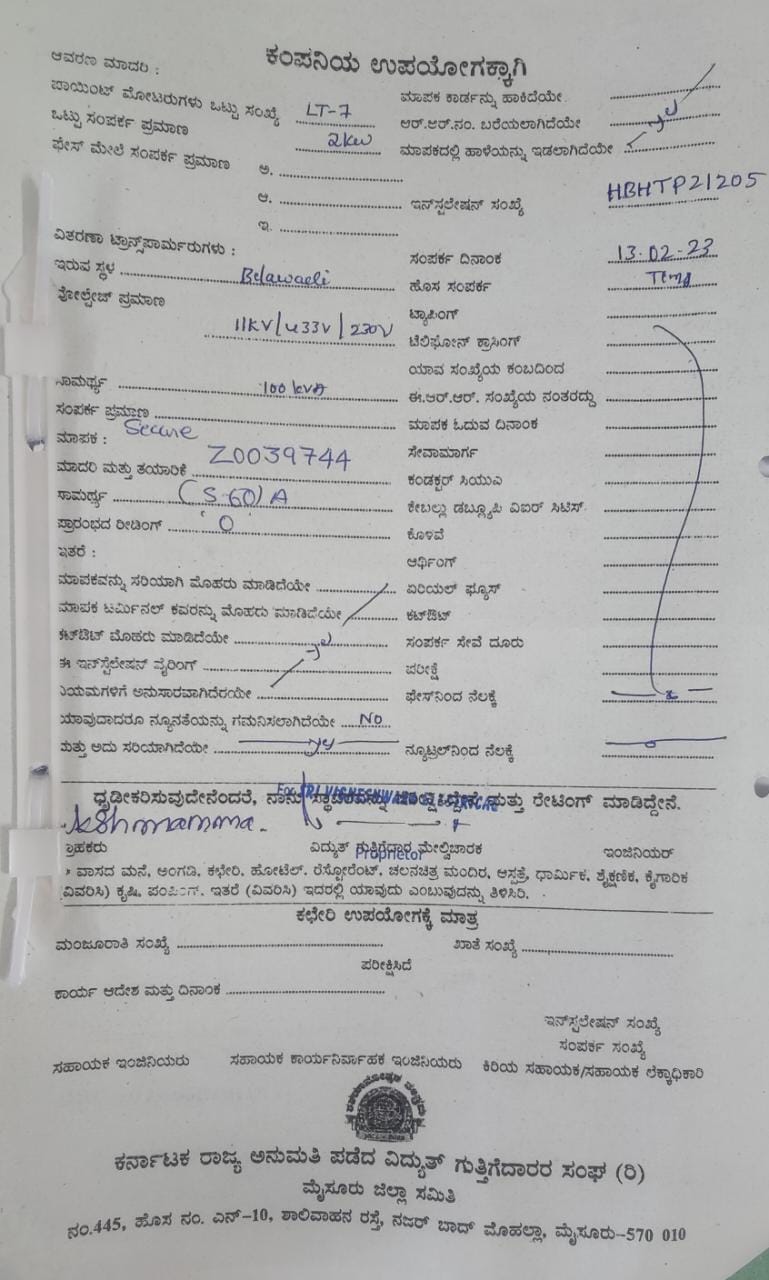 ಕಂಪನಿಯ ಉಪಯೋಗಕ್ಕಾಗಿ
ಆವರಣ ಮಾದರಿ :
ಪಾಯಿಂಟ್ ಮೋಟರುಗಳು ಒಟ್ಟು ಸಂಖ್ಯೆ LT-7 ಮಾಪಕ ಕಾರ್ಡನ್ನು ಹಾಕಿದೆಯೇ
ಒಟ್ಟು ಸಂಪರ್ಕ ಪ್ರಮಾಣ 2kw ಆರ್.ಆರ್.ನಂ. ಬರೆಯಲಾಗಿದೆಯೇ
ಫೇಸ್ ಮೇಲೆ ಸಂಪರ್ಕ ಪ್ರಮಾಣ ಅ. ಮಾಪಕದಲ್ಲಿ ಹಾಳೆಯನ್ನು ಇಡಲಾಗಿದೆಯೇ
ಆ. ಇನ್‌ಸ್ಟಲೇಷನ್ ಸಂಖ್ಯೆ HBHTP21205
ಇ.
ವಿತರಣಾ ಟ್ರಾನ್ಸ್‌ಫಾರ್ಮರುಗಳು : ಸಂಪರ್ಕ ದಿನಾಂಕ 13.02.23
ಇರುವ ಸ್ಥಳ ಹೊಸ ಸಂಪರ್ಕ
ವೋಲ್ಟೇಜ್ ಪ್ರಮಾಣ 11KV/433V/230V ಟ್ಯಾಪಿಂಗ್
ಟೆಲಿಫೋನ್ ಕ್ರಾಸಿಂಗ್
ಯಾವ ಸಂಖ್ಯೆಯ ಕಂಬದಿಂದ
ಸಾಮರ್ಥ್ಯ 100 kVA ಈ.ಆರ್.ಆರ್. ಸಂಖ್ಯೆಯ ನಂತರದ್ದು
ಸಂಪರ್ಕ ಪ್ರಮಾಣ ಮಾಪಕ ಓದುವ ದಿನಾಂಕ
ಮಾಪಕ : Secure ಸೇವಾಮಾರ್ಗ
ಮಾದರಿ ಮತ್ತು ತಯಾರಿಕೆ Z0039744 ಕಂಡಕ್ಟರ್ ಸಿಯುಎ
ಸಾಮರ್ಥ್ಯ (5-60)A ಕೇಬಲ್ಲು ಡಬ್ಲ್ಯೂಪಿ ವಿಐರ್ ಸಿಟಿಸ್.
ಪ್ರಾರಂಭದ ರೀಡಿಂಗ್ 0 ಕೊಳವೆ
ಇತರೆ : ಆರ್ಥಿಂಗ್
ಮಾಪಕವನ್ನು ಸರಿಯಾಗಿ ಮೊಹರು ಮಾಡಿದೆಯೇ ಏರಿಯಲ್ ಫ್ಯೂಸ್
ಮಾಪಕ ಟರ್ಮಿನಲ್ ಕವರನ್ನು ಮೊಹರು ಮಾಡಿದೆಯೇ ಕಟ್‌ಔಟ್
ಕಟ್‌ಔಟ್ ಮೊಹರು ಮಾಡಿದೆಯೇ ಸಂಪರ್ಕ ಸೇವೆ ದೂರು
ಈ ಇನ್‌ಸ್ಟಲೇಷನ್ ವೈರಿಂಗ್ ಪರೀಕ್ಷೆ
ನಿಯಮಗಳಿಗೆ ಅನುಸಾರವಾಗಿದೆರಯೇ ಫೇಸ್‌ನಿಂದ ನೆಲಕ್ಕೆ
ಯಾವುದಾದರೂ ನ್ಯೂನತೆಯನ್ನು ಗಮನಿಸಲಾಗಿದೆಯೇ NO
ಮತ್ತು ಅದು ಸರಿಯಾಗಿದೆಯೇ ನ್ಯೂಟ್ರಲ್‌ನಿಂದ ನೆಲಕ್ಕೆ
ಧೃಡೀಕರಿಸುವುದೇನೆಂದರೆ, ನಾನು ಸ್ಥಾವರವನ್ನು ಮತ್ತು ರೇಟಿಂಗ್ ಮಾಡಿದ್ದೇನೆ.
ಗ್ರಾಹಕರು ವಿದ್ಯುತ್ ಗುತ್ತಿಗೆದಾರ ಮೇಲ್ವಿಚಾರಕ ಇಂಜಿನಿಯರ್
Proprietor
* ವಾಸದ ಮನೆ, ಅಂಗಡಿ, ಕಛೇರಿ, ಹೋಟೆಲ್. ರೆಸ್ಟೋರೆಂಟ್, ಚಲನಚಿತ್ರ ಮಂದಿರ, ಆಸ್ಪತ್ರೆ, ಧಾರ್ಮಿಕ, ಶೈಕ್ಷಣಿಕ, ಕೈಗಾರಿಕ
(ವಿವರಿಸಿ) ಕೃಷಿ, ಪಂಪಿಂಗ್. ಇತರೆ (ವಿವರಿಸಿ) ಇದರಲ್ಲಿ ಯಾವುದು ಎಂಬುವುದನ್ನು ತಿಳಿಸಿರಿ.
ಕಛೇರಿ ಉಪಯೋಗಕ್ಕೆ ಮಾತ್ರ
ಮಂಜೂರಾತಿ ಸಂಖ್ಯೆ ಖಾತೆ ಸಂಖ್ಯೆ
ಪರೀಕ್ಷಿಸಿದೆ
ಕಾರ್ಯ ಆದೇಶ ಮತ್ತು ದಿನಾಂಕ
ಇನ್‌ಸ್ಟಲೇಷನ್ ಸಂಖ್ಯೆ
ಸಂಪರ್ಕ ಸಂಖ್ಯೆ
ಸಹಾಯಕ ಇಂಜಿನಿಯರು ಸಹಾಯಕ ಕಾರ್ಯನಿರ್ವಾಹಕ ಇಂಜಿನಿಯರು ಕಿರಿಯ ಸಹಾಯಕ/ಸಹಾಯಕ ಲೆಕ್ಕಾಧಿಕಾರಿ
ಕರ್ನಾಟಕ ರಾಜ್ಯ ಅನುಮತಿ ಪಡೆದ ವಿದ್ಯುತ್ ಗುತ್ತಿಗೆದಾರರ ಸಂಘ (ರಿ)
ಮೈಸೂರು ಜಿಲ್ಲಾ ಸಮಿತಿ
ನಂ.445, ಹೊಸ ನಂ. ಎನ್-10, ಶಾಲಿವಾಹನ ರಸ್ತೆ, ನಜರ್ ಬಾದ್ ಮೊಹಲ್ಲಾ, ಮೈಸೂರು-570 010